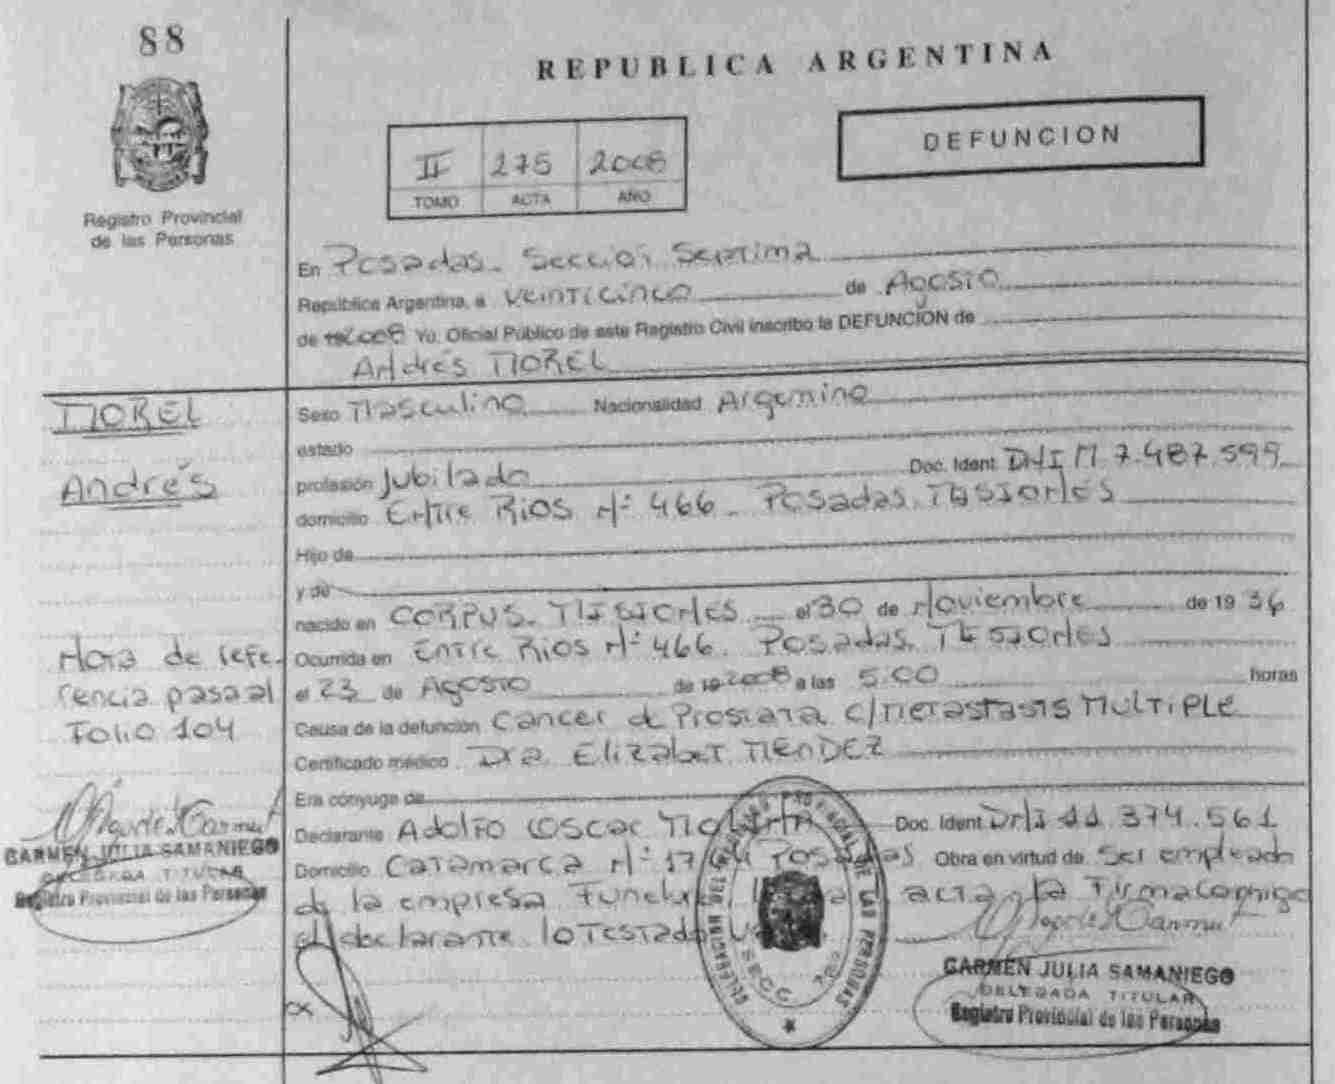 88
REPUBLICA ARGENTINA
DEFUNCION
II 275 2008
TOMO ACTA AÑO
Registro Provincial
de las Personas
En Posadas. Sección Septima
República Argentina, a veinticinco de Agosto
de 192008 Yo, Oficial Público de este Registro Civil inscribo la DEFUNCIÓN de
Andrés MOREL
MOREL
Andrés
Sexo Masculino Nacionalidad Argentino
estado
profesión Jubilado Doc. Ident. DNI M 7.487.599
domicilio Entre Rios Nº 466. Posadas. Misiones
Hijo de
y de
nacido en CORPUS. Misiones el 30 de Noviembre de 19 36
Ocurrida en Entre Rios Nº 466. Posadas. Misiones
el 23 de Agosto de 19 2008 a las 5:00 horas
Causa de la defunción Cancer de Prostata c/Metastasis Multiple
Certificado médico Dra. Elizabet MENDEZ
Nota de refe-
rencia pasa al
Folio 104
Era cónyuge de
Declarante Adolfo Oscar Doc. Ident. DNI 11.374.561
Domicilio Catamarca Nº Posadas Obra en virtud de ser empleado
de la empresa acta la firma conmigo
el declarante. lo Testado
CARMEN JULIA SAMANIEGO
DELEGADA TITULAR
Registro Provincial de las Personas
DELEGACION DEL REGISTRO PROVINCIAL DE LAS PERSONAS
SECC. 7ª
CARMEN JULIA SAMANIEGO
DELEGADA TITULAR
Registro Provincial de las Personas